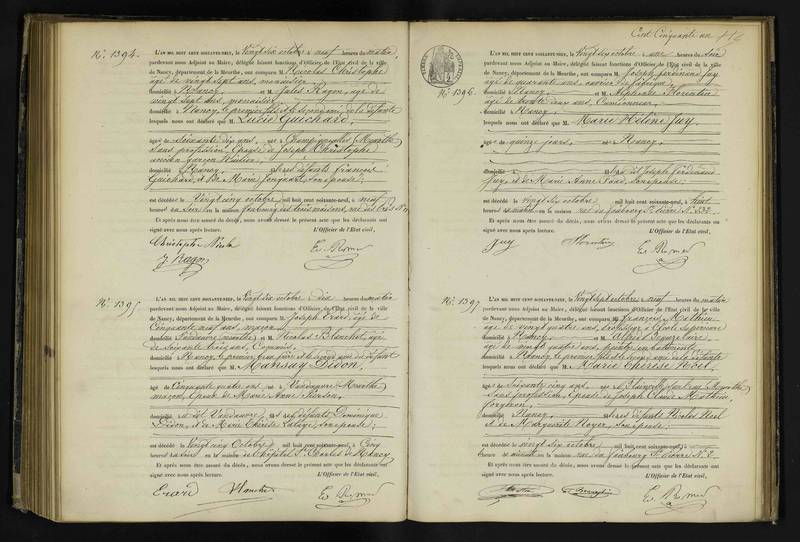 Cent Cinquante un 416
N° 1394.
L'AN MIL HUIT CENT SOIXANTE-NEUF, le Vingt six octobre à neuf heures du matin,
pardevant nous Adjoint au Maire, délégué faisant fonctions d'Officier de l'État civil de la ville
de Nancy, département de la Meurthe, ont comparu M. Nicolas Christophe
âgé de vingt sept ans, menuisier
domicilié à Nancy et M. Jules Ragon, âgé de
vingt sept ans, menuisier
domicilié à Nancy, le premier fils et le second ami de la défunte
lesquels nous ont déclaré que M. Lucie Guichard,
âgée de soixante dix ans, née à Champigneulles (Meurthe)
sans profession, Epouse de Joseph Christophe
ancien garçon
domicilié à Nancy, fille des défunts François
Guichard, et de Marie Jongeart, son épouse;
est décédée le Vingt cinq octobre, mil huit cent soixante-neuf, à neuf
heures du soir en la maison faubourg des trois maisons,
Et après nous être assuré du décès, nous avons dressé le présent acte que les déclarants ont
signé avec nous après lecture. L'Officier de l'Etat civil,
Christophe Nicola
J Ragon
N° 1395
L'AN MIL HUIT CENT SOIXANTE-NEUF, le Vingt six octobre à dix heures du matin
pardevant nous Adjoint au Maire, délégué faisant fonctions d'Officier de l'État civil de la ville
de Nancy, département de la Meurthe, ont comparu M. Joseph Evard, âgé de
Cinquante neuf ans, maçon
domicilié à Vandœuvre (Meurthe) et M. Nicolas Blanchot, âgé
de soixante trois ans, Commis
domicilié à Nancy, le premier beau frère et le second ami du défunt
lesquels nous ont déclaré que M. Mansuy Didon,
âgé de Cinquante quatre ans né à Vandœuvre Meurthe
maçon, Epoux de Marie Anne
domicilié à dit Vandœuvre, fils des défunts Dominique
Didon, et de Marie Thérèse son épouse;
est décédé le Vingt cinq Octobre, mil huit cent soixante-neuf, à Cinq
heures du soir en la maison de l'hôpital St Charles de Nancy
Et après nous être assuré du décès, nous avons dressé le présent acte que les déclarants ont
signé avec nous après lecture. L'Officier de l'Etat civil,
Evard
N° 1396.
L'AN MIL HUIT CENT SOIXANTE-NEUF, le Vingt six octobre à une heures du soir
pardevant nous Adjoint au Maire, délégué faisant fonctions d'Officier de l'État civil de la ville
de Nancy, département de la Meurthe, ont comparu M. Joseph Ferdinand Juy
âgé de quarante ans, ouvrier de fabrique,
domicilié à Nancy et M. Florentin
âgé de trente deux ans, Camionneur,
domicilié à Nancy
lesquels nous ont déclaré que M. Marie Hélène Juy,
âgée de quinze jours, née à Nancy,
domicilié à fille de Joseph Ferdinand
Juy, et de Marie Anne son épouse;
est décédée le vingt six octobre mil huit cent soixante-neuf, à huit
heures du matin en la maison rue du faubourg St Pierre N° 232.
Et après nous être assuré du décès, nous avons dressé le présent acte que les déclarants ont
signé avec nous après lecture. L'Officier de l'Etat civil,
Juy Florentin
N° 1397
L'AN MIL HUIT CENT SOIXANTE-NEUF, le Vingt sept octobre à neuf heures du matin
pardevant nous Adjoint au Maire, délégué faisant fonctions d'Officier de l'État civil de la ville
de Nancy, département de la Meurthe, ont comparu M. François Mathieu
âgé de vingt quatre ans, à l'école supérieure
domicilié à Nancy et M. Alfred
âgé de vingt quatre ans,
domicilié à Nancy, le premier fils et le second ami de la défunte
lesquels nous ont déclaré que M. Marie Thérèse Noël
âgée de soixante cinq ans, née à Blainville sur l'eau Meurthe
sans profession, Epouse de Joseph Claude Mathieu,
forgeron,
domicilié à Nancy, fille des défunts Nicolas Noël
et de Marguerite Noyer, son épouse;
est décédée le vingt six octobre, mil huit cent soixante-neuf, à
heures en la maison rue du faubourg St Pierre N° 2
Et après nous être assuré du décès, nous avons dressé le présent acte que les déclarants ont
signé avec nous après lecture. L'Officier de l'Etat civil,